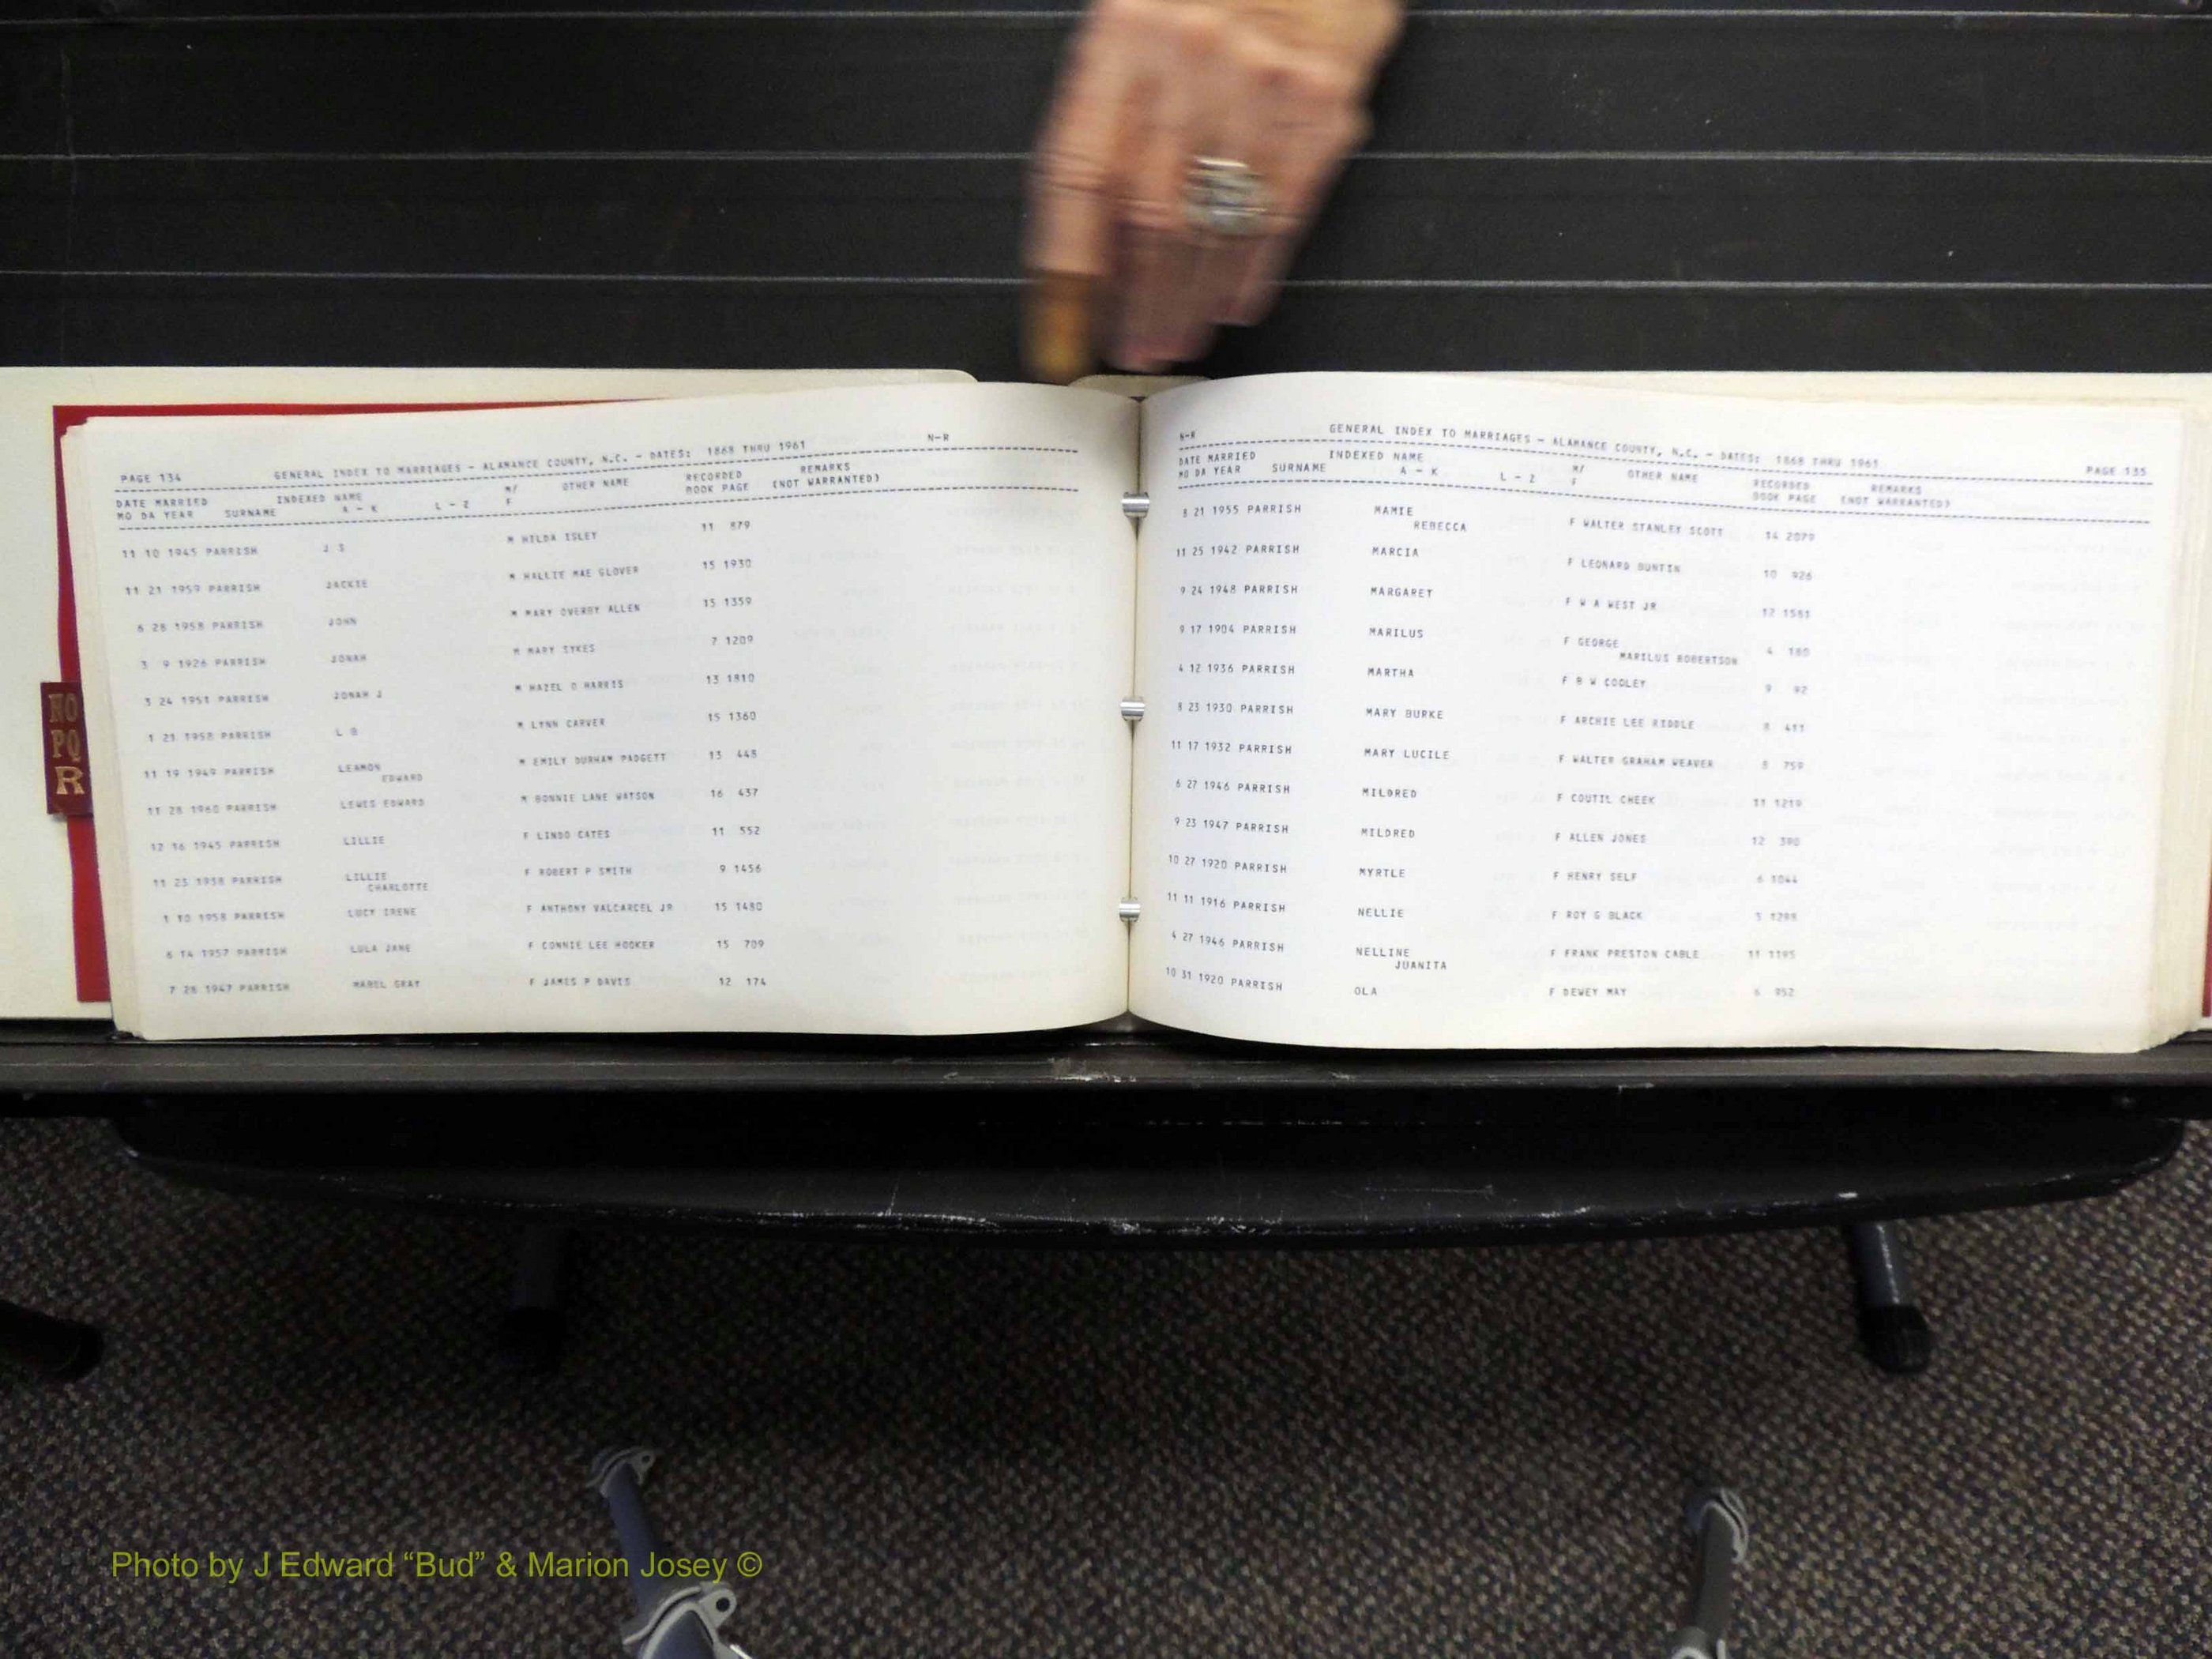 PAGE 134 GENERAL INDEX TO MARRIAGES - ALAMANCE COUNTY, N.C. - DATES: 1868 THRU 1961 N-R
DATE MARRIED INDEXED NAME M/ OTHER NAME RECORDED REMARKS
MO DA YEAR SURNAME A - K L - Z F BOOK PAGE (NOT WARRANTED)
11 10 1945 PARRISH J S M HILDA ISLEY 11 879
11 21 1959 PARRISH JACKIE M HALLIE MAE GLOVER 15 1930
6 28 1958 PARRISH JOHN M MARY OVERBY ALLEN 15 1359
3 9 1926 PARRISH JONAH M MARY SYKES 7 1209
3 24 1951 PARRISH JONAH J M HAZEL O HARRIS 13 1810
1 23 1958 PARRISH L B M LYNN CARVER 15 1360
11 19 1949 PARRISH LEAMON M EMILY DURHAM PADGETT 13 448
EDWARD
11 28 1960 PARRISH LEWIS EDWARD M BONNIE LANE WATSON 16 437
12 16 1945 PARRISH LILLIE F LINDO CATES 11 552
11 23 1938 PARRISH LILLIE F ROBERT P SMITH 9 1456
CHARLOTTE
1 10 1958 PARRISH LUCY IRENE F ANTHONY VALCARCEL JR 15 1480
6 14 1957 PARRISH LULA JANE F CONNIE LEE HOOKER 15 709
7 28 1947 PARRISH MABEL GRAY F JAMES P DAVIS 12 174
N-R GENERAL INDEX TO MARRIAGES - ALAMANCE COUNTY, N.C. - DATES: 1868 THRU 1961 PAGE 135
DATE MARRIED INDEXED NAME M/ OTHER NAME RECORDED REMARKS
MO DA YEAR SURNAME A - K L - Z F BOOK PAGE (NOT WARRANTED)
8 21 1955 PARRISH MAMIE F WALTER STANLEY SCOTT 14 2079
REBECCA
11 25 1942 PARRISH MARCIA F LEONARD BUNTIN 10 926
9 24 1948 PARRISH MARGARET F W A WEST JR 12 1581
9 17 1904 PARRISH MARILUS F GEORGE 4 180
MARILUS ROBERTSON
4 12 1936 PARRISH MARTHA F B W COOLEY 9 92
8 23 1930 PARRISH MARY BURKE F ARCHIE LEE RIDDLE 8 411
11 17 1932 PARRISH MARY LUCILE F WALTER GRAHAM WEAVER 8 759
6 27 1946 PARRISH MILDRED F COUTIL CHEEK 11 1219
9 23 1947 PARRISH MILDRED F ALLEN JONES 12 390
10 27 1920 PARRISH MYRTLE F HENRY SELF 6 1044
11 11 1916 PARRISH NELLIE F ROY G BLACK 5 1298
4 27 1946 PARRISH NELLINE F FRANK PRESTON CABLE 11 1195
JUANITA
10 31 1920 PARRISH OLA F DEWEY MAY 6 952
NO
PQ
R
Photo by J Edward “Bud” & Marion Josey ©